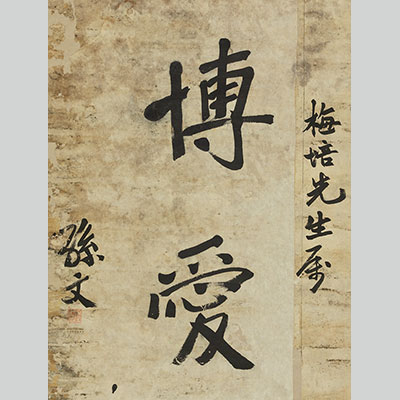 梅培先生属
博愛
孫文